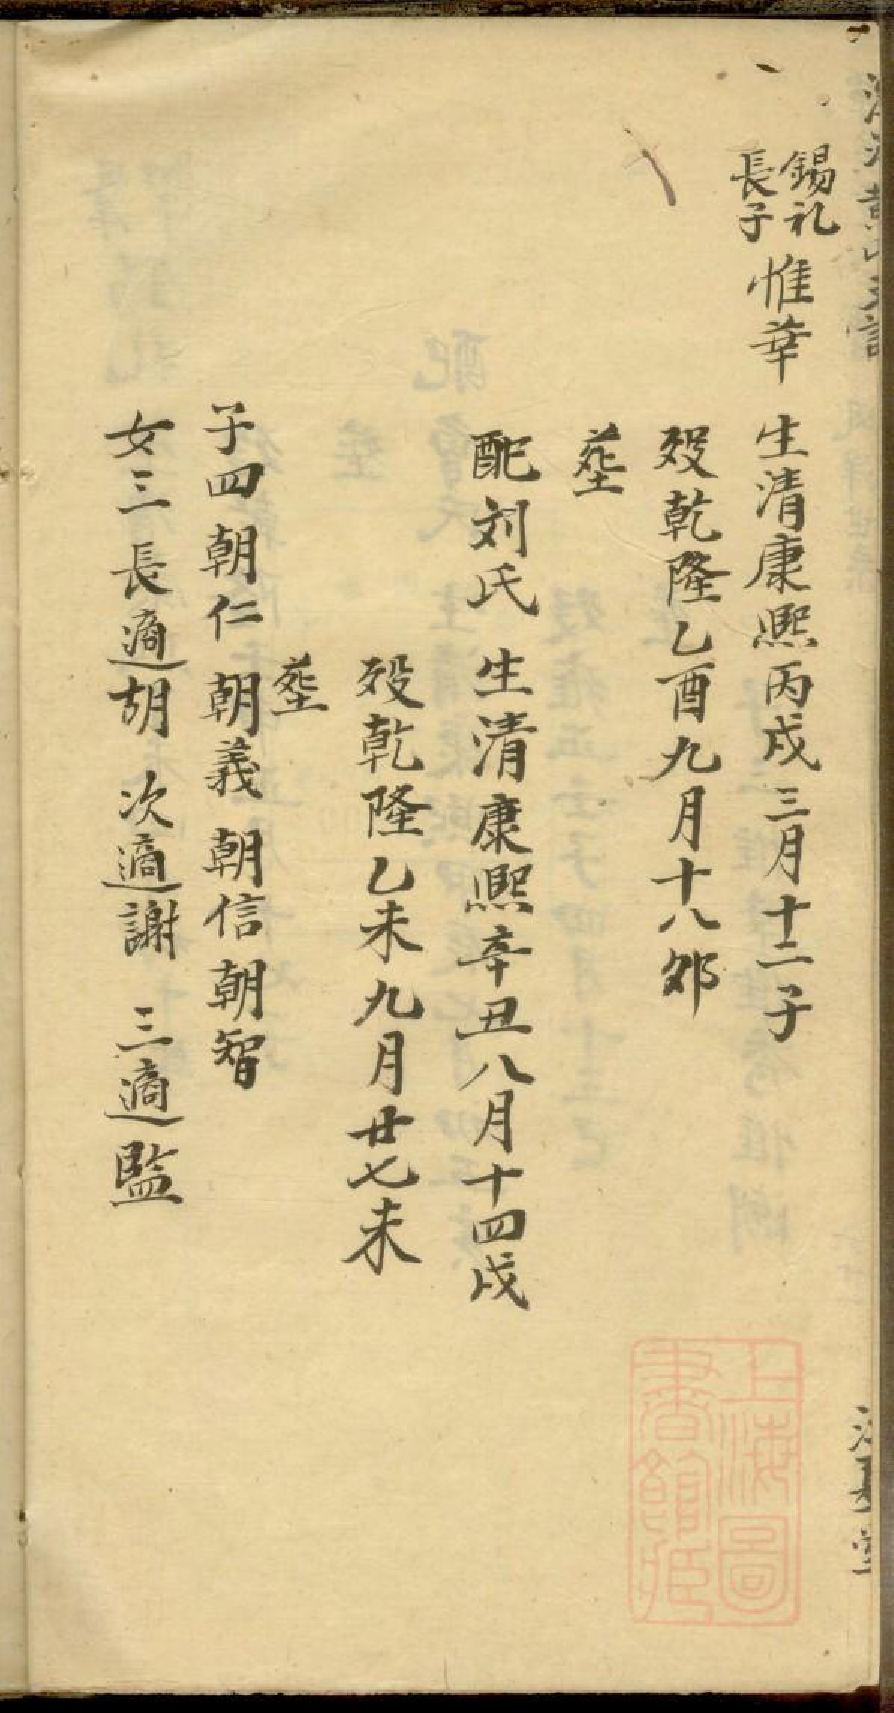 錫礼
長子
惟華 生清康熙丙戌三月十二子
殁乾隆乙酉九月十八卯
塟
配刘氏 生清康熙辛丑八月十四戌
殁乾隆乙未九月廿七未
塟
子四朝仁 朝義 朝信 朝智
女三 長適胡 次適謝 三適監
上海圖
書館藏